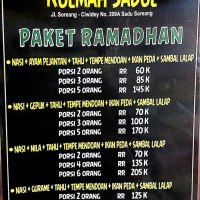 ROEMAH SADOE
Jl. Soreang - Ciwidey No. 209A Sadu Soreang
PAKET RAMADHAN
• NASI + AYAM PEJANTAN + TAHU + TEMPE MENDOAN + IKAN PEDA + SAMBAL LALAP
PORSI 2 ORANG RP 60 K
PORSI 3 ORANG RP 85 K
PORSI 5 ORANG RP 145 K
• NASI + GEPUK + TAHU + TEMPE MENDOAN + IKAN PEDA + SAMBAL LALAP
PORSI 2 ORANG RP 70 K
PORSI 3 ORANG RP 100 K
PORSI 5 ORANG RP 170 K
• NASI + NILA + TAHU + TEMPE MENDOAN + IKAN PEDA + SAMBAL LALAP
PORSI 2 ORANG RP 70 K
PORSI 4 ORANG RP 135 K
PORSI 6 ORANG RP 205 K
• NASI + GURAME + TAHU + TEMPE MENDOAN + IKAN PEDA + SAMBAL LALAP
PORSI 2 ORANG RP 125 K